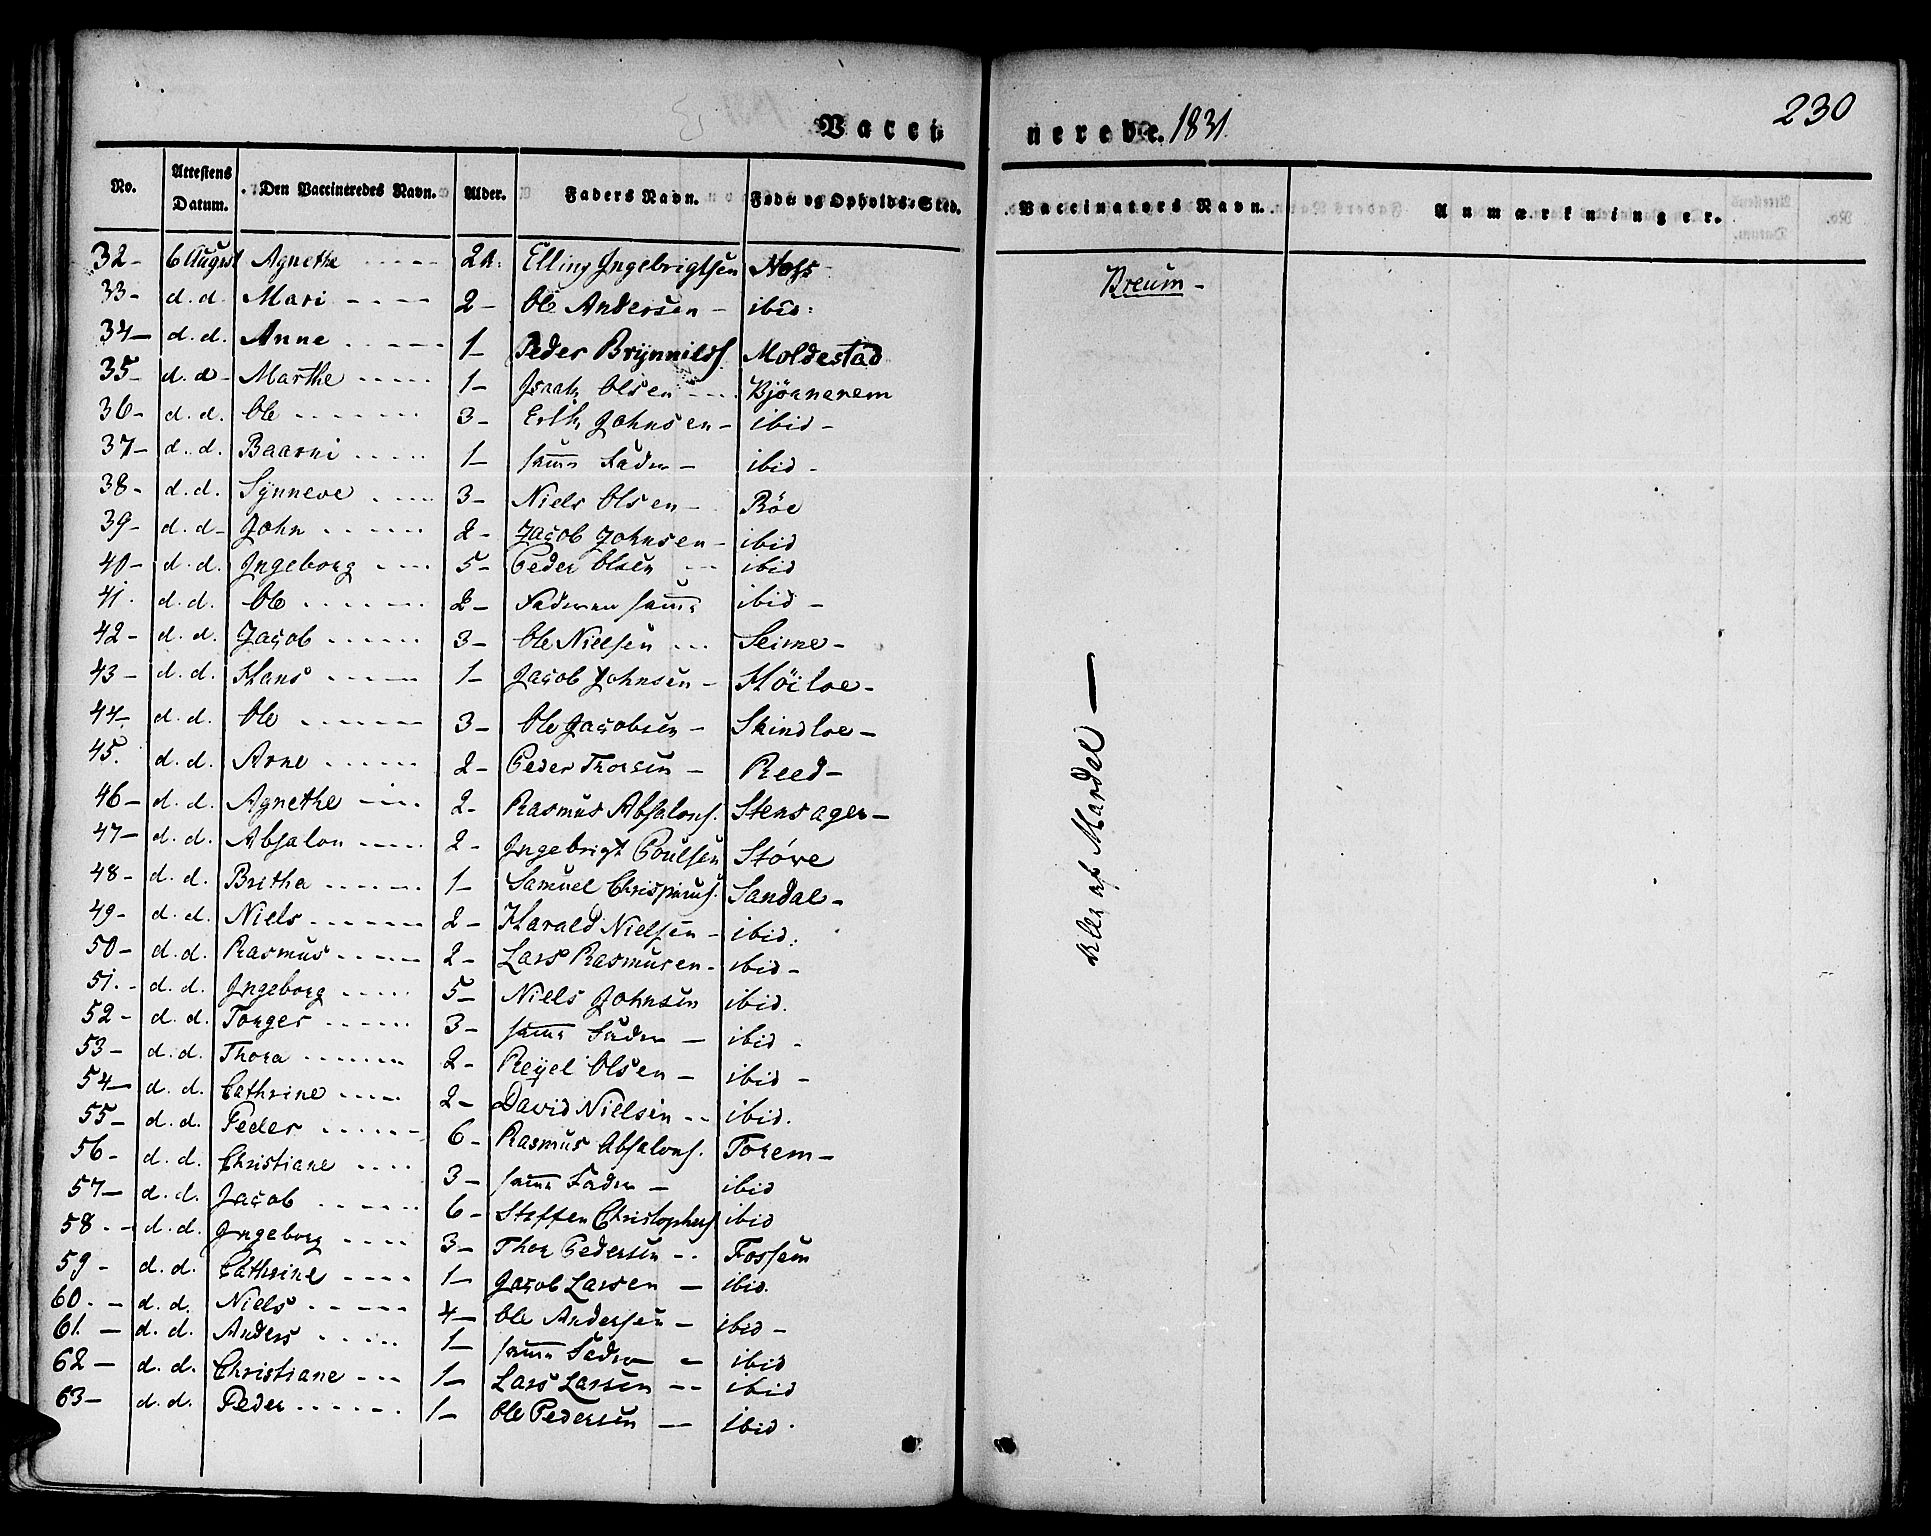 Vacci nerede. 1831.
230
No. Attestens Datum. Den Vaccineredes Navn. Alder. Faders Navn. Føde og Opholds-Sted. Vaccinateurs Navn. Anmærkninger.
32 - 6 August Agnethe - - - - 2 A. Elling Ingebrigtsen Noss
Breum -
33 - d. d. Mari - - - - 2 - Ole Andersen - ibid:
34 - d. d. Anne - - - - 1 - Peder Brynnilds. Moldestad
35 - d. d - Marthe - - - - 1 - Isaak Olsen - - - Bjørnerem
36 - d. d. Ole - - - - 3 - Erik Johnsen - ibid -
37 - d. d. Baarni - - - - 1 - samme Fader - ibid -
38 - d. d. Synneve - - - - 3 - Niels Olsen - Røe
39 - d. d - John - - - - 2 - Jacob Johnsen - ibid
40 - d. d. Ingeborg - - - - 5 - Peder Olsen - - ibid
41. d. d. Ole - - - - 2 - Faderen samme ibid -
42 - d. d. Jacob - - - - 3 - Ole Nielsen - - - Seime -
43 - d. d. Hans - - - - 1 - Jacob Johnsen - Høiloe -
44 - d. d. Ole - - - - 3 - Ole Jacobsen - Skindloe -
45. d. d. Arne - - - - 2 - Peder Thorsen - Reed -
46 - d. d. Agnethe - - - - 2 - Rasmus Absalons. Stensager -
47 - d. d. Absalon - - - - 2 - Ingebrigt Poulsen Støve
48 - d. d. Britha - - - - 1 - Samuel Chrispinus. Sandal -
49 - d. d. Niels - - - - 2 - Harald Nielsen - ibid:
50 - d. d. Rasmus - - - - 2 - Lars Rasmusen - ibid -
51. - d. d. Ingeborg - - - - 5 - Niels Johnsen ibid.
52 - d. d. Torger - - - - 3 - samme Fader - ibid -
53 - d. d. Thora - - - - 2 - Reyel Olsen - ibid -
54 - d. d. Cathrine - - - - 2 - David Nielsen - - ibid.
55 - d. d. Peder - - - - 6 - Rasmus Absalons. Forem -
56 - d. d. Christiane - - - - 3 - samme Fader - ibid
57 - d. d. Jacob - - - - 6 - Steffen Christophers ibid
58. - d. d. Ingeborg - - - - 3 - Thor Pedersen - - Fossem
59 - d. d. Cathrine - - - - 1 - Jacob Larsen - ibid.
60. - d. d. Niels - - - - 4 - Ole Andersen - ibid -
61. - d. d. Anders - - - - 1 - samme Fader - ibid
62 - d. d. Christiane - - - 1 - Lars Larsen - - ibid
63 - d. d. Peder - - - - 1 - Ole Pedersen - ibid.
Alle af Mardal -